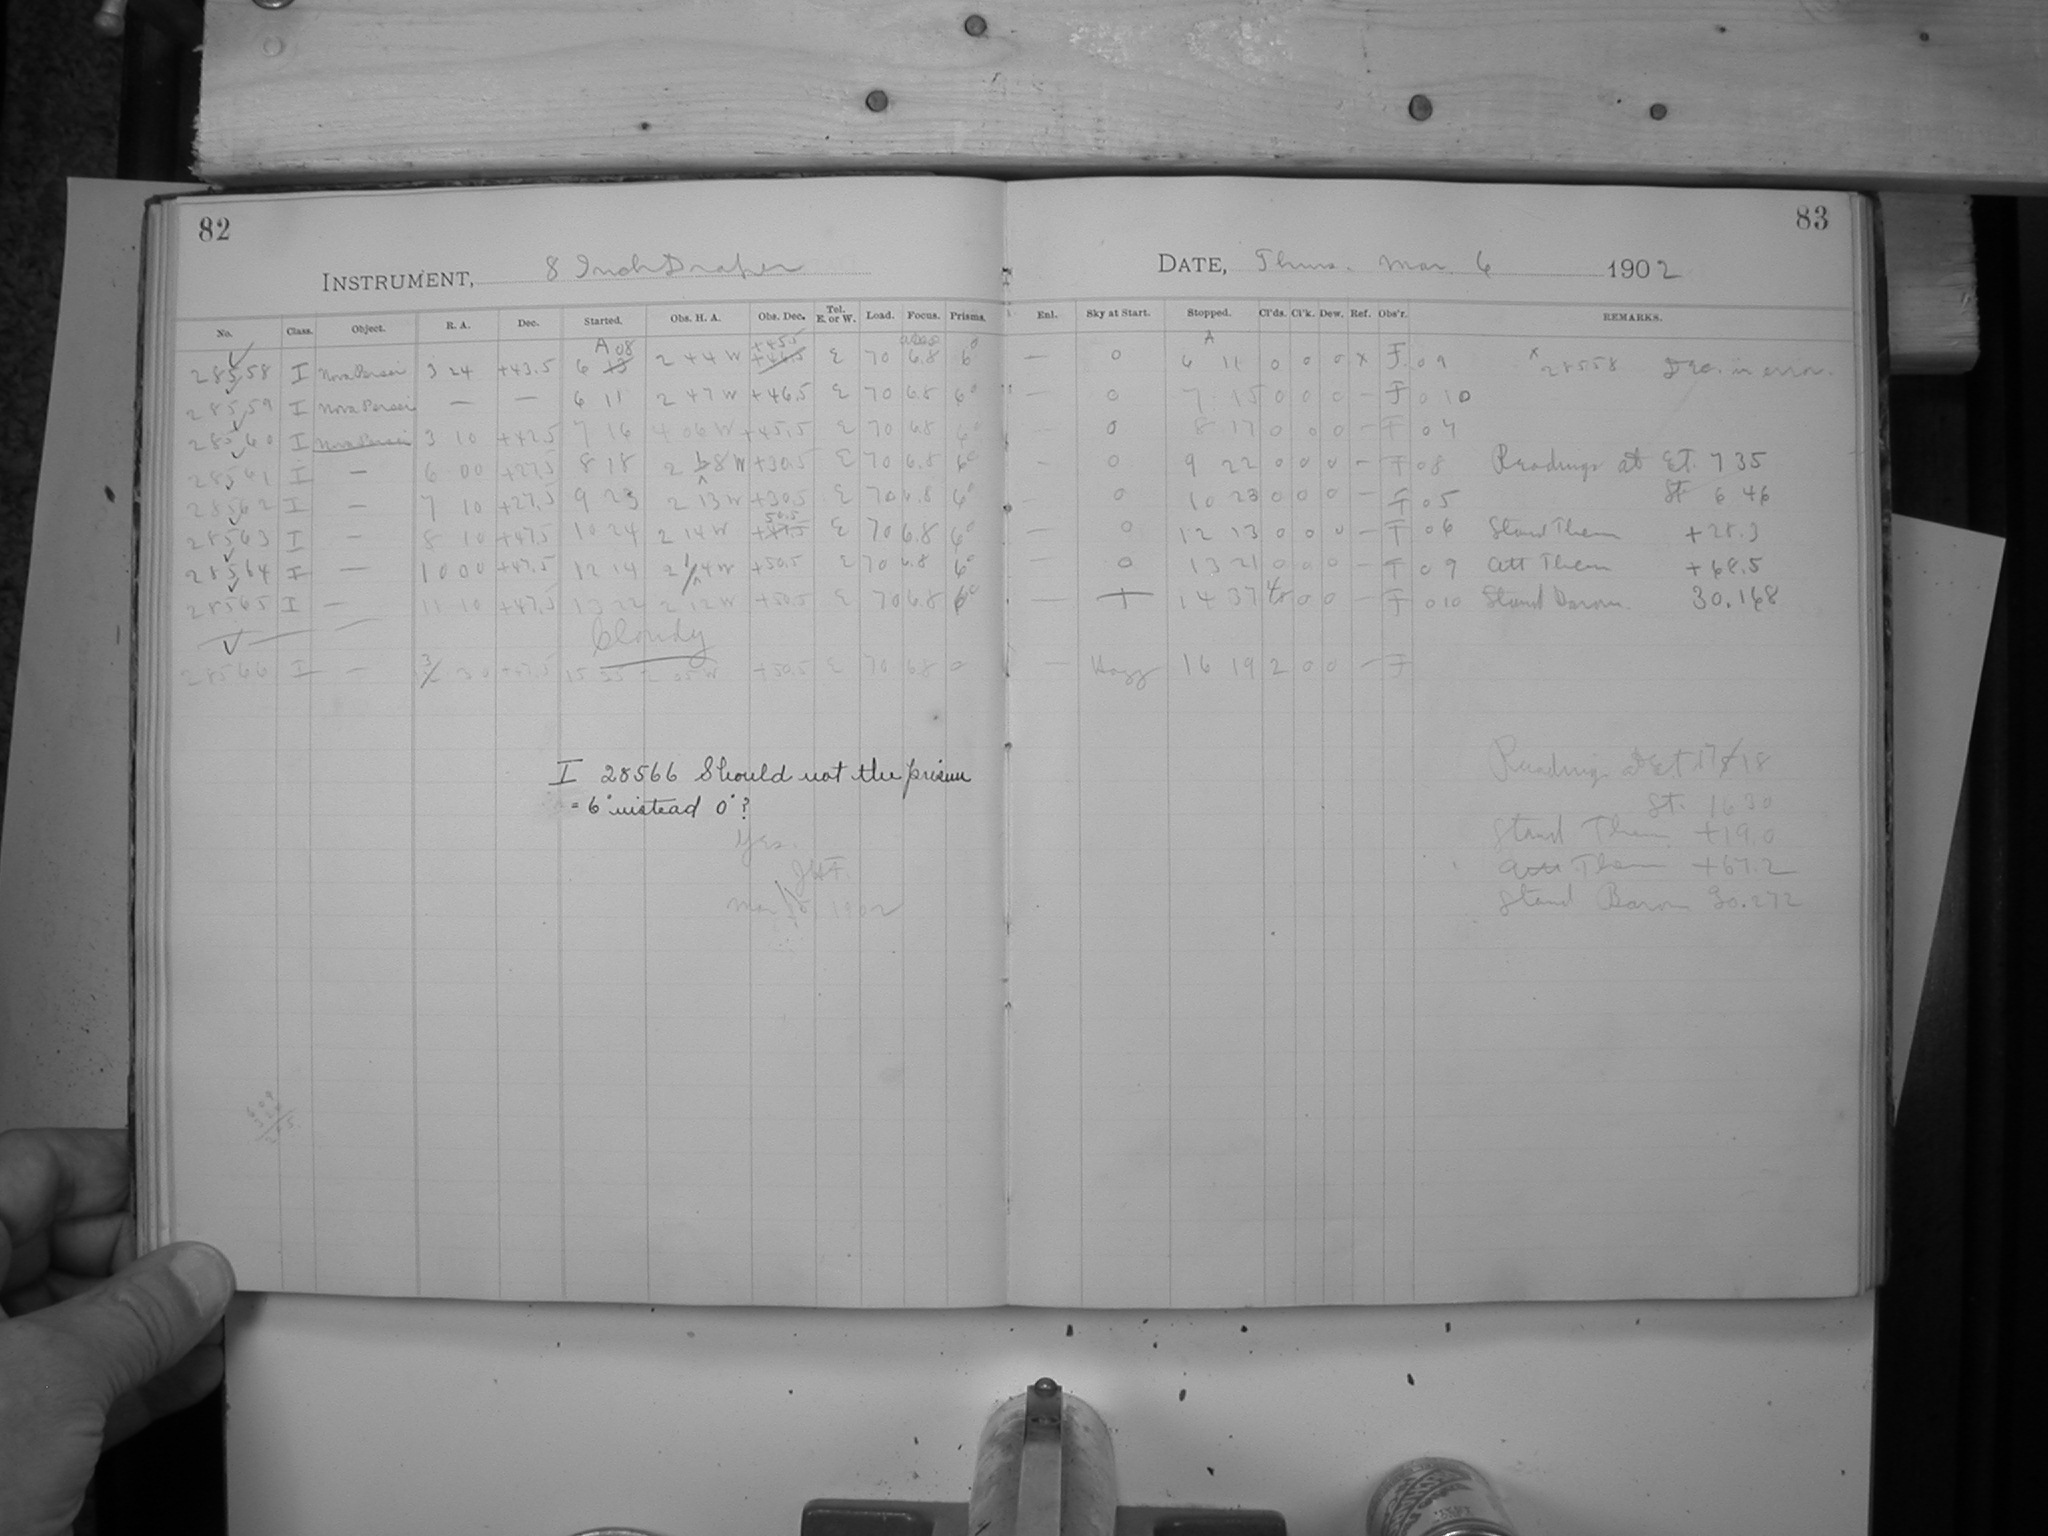 82
83
INSTRUMENT, 8 Inch Draper
DATE, Thurs. Mar. 6 1902
No. Class. Object. R. A. Dec. Started. Obs. H. A. Obs. Dec. Tel. E. or W. Load. Focus. Prisms. Enl. Sky at Start. Stopped. Cl'ds. Cl'k. Dew. Ref. Obs'r. REMARKS.
28558 I Nova Persei 3 24 +43.5 6 08 2 44 W +45.5 E 70 6.8 6° — 0 6 11 0 0 0 x F. 09 x 28558 Dec. in error.
28559 I Nova Persei — — 6 11 2 47 W +46.5 E 70 6.8 6° — 0 7 15 0 0 0 – F 0 10
28560 I Nova Persei 3 10 +42.5 7 16 4 06 W +45.5 E 70 6.8 6° – 0 8 17 0 0 0 – F 07
28561 I — 6 00 +27.5 8 18 2 8 W +30.5 E 70 6.8 6° – 0 9 22 0 0 0 – F 08 Readings at ET. 7 35
28562 I — 7 10 +27.5 9 23 2 13 W +30.5 E 70 6.8 6° – 0 10 23 0 0 0 – F 05 St. 6 46
28563 I — 8 10 +47.5 10 24 2 14 W 50.5 E 70 6.8 6° — 0 12 13 0 0 0 – F 06 Stand Them +28.3
28564 I — 10 00 +47.5 12 14 2 14 W +50.5 E 70 6.8 6° — 0 13 21 0 0 0 – F 09 Att Them +68.5
28565 I — 11 10 +47.5 13 22 2 12 W +50.5 E 70 6.8 6° — + 14 37 0 0 – F 0 10 Stand Barom. 30.168
Cloudy
28566 I — 30 +47.5 15 35 2 05 W +50.5 E 70 6.8 0 — Hazy 16 19 2 0 0 – F
I 28566 Should not the prism
= 6° instead 0°?
Yes.
JHF.
Mar 1902
Readings at ET. 17 18
St. 16 30
Stand Them +19.0
Att Them +67.2
Stand Barom 30.272